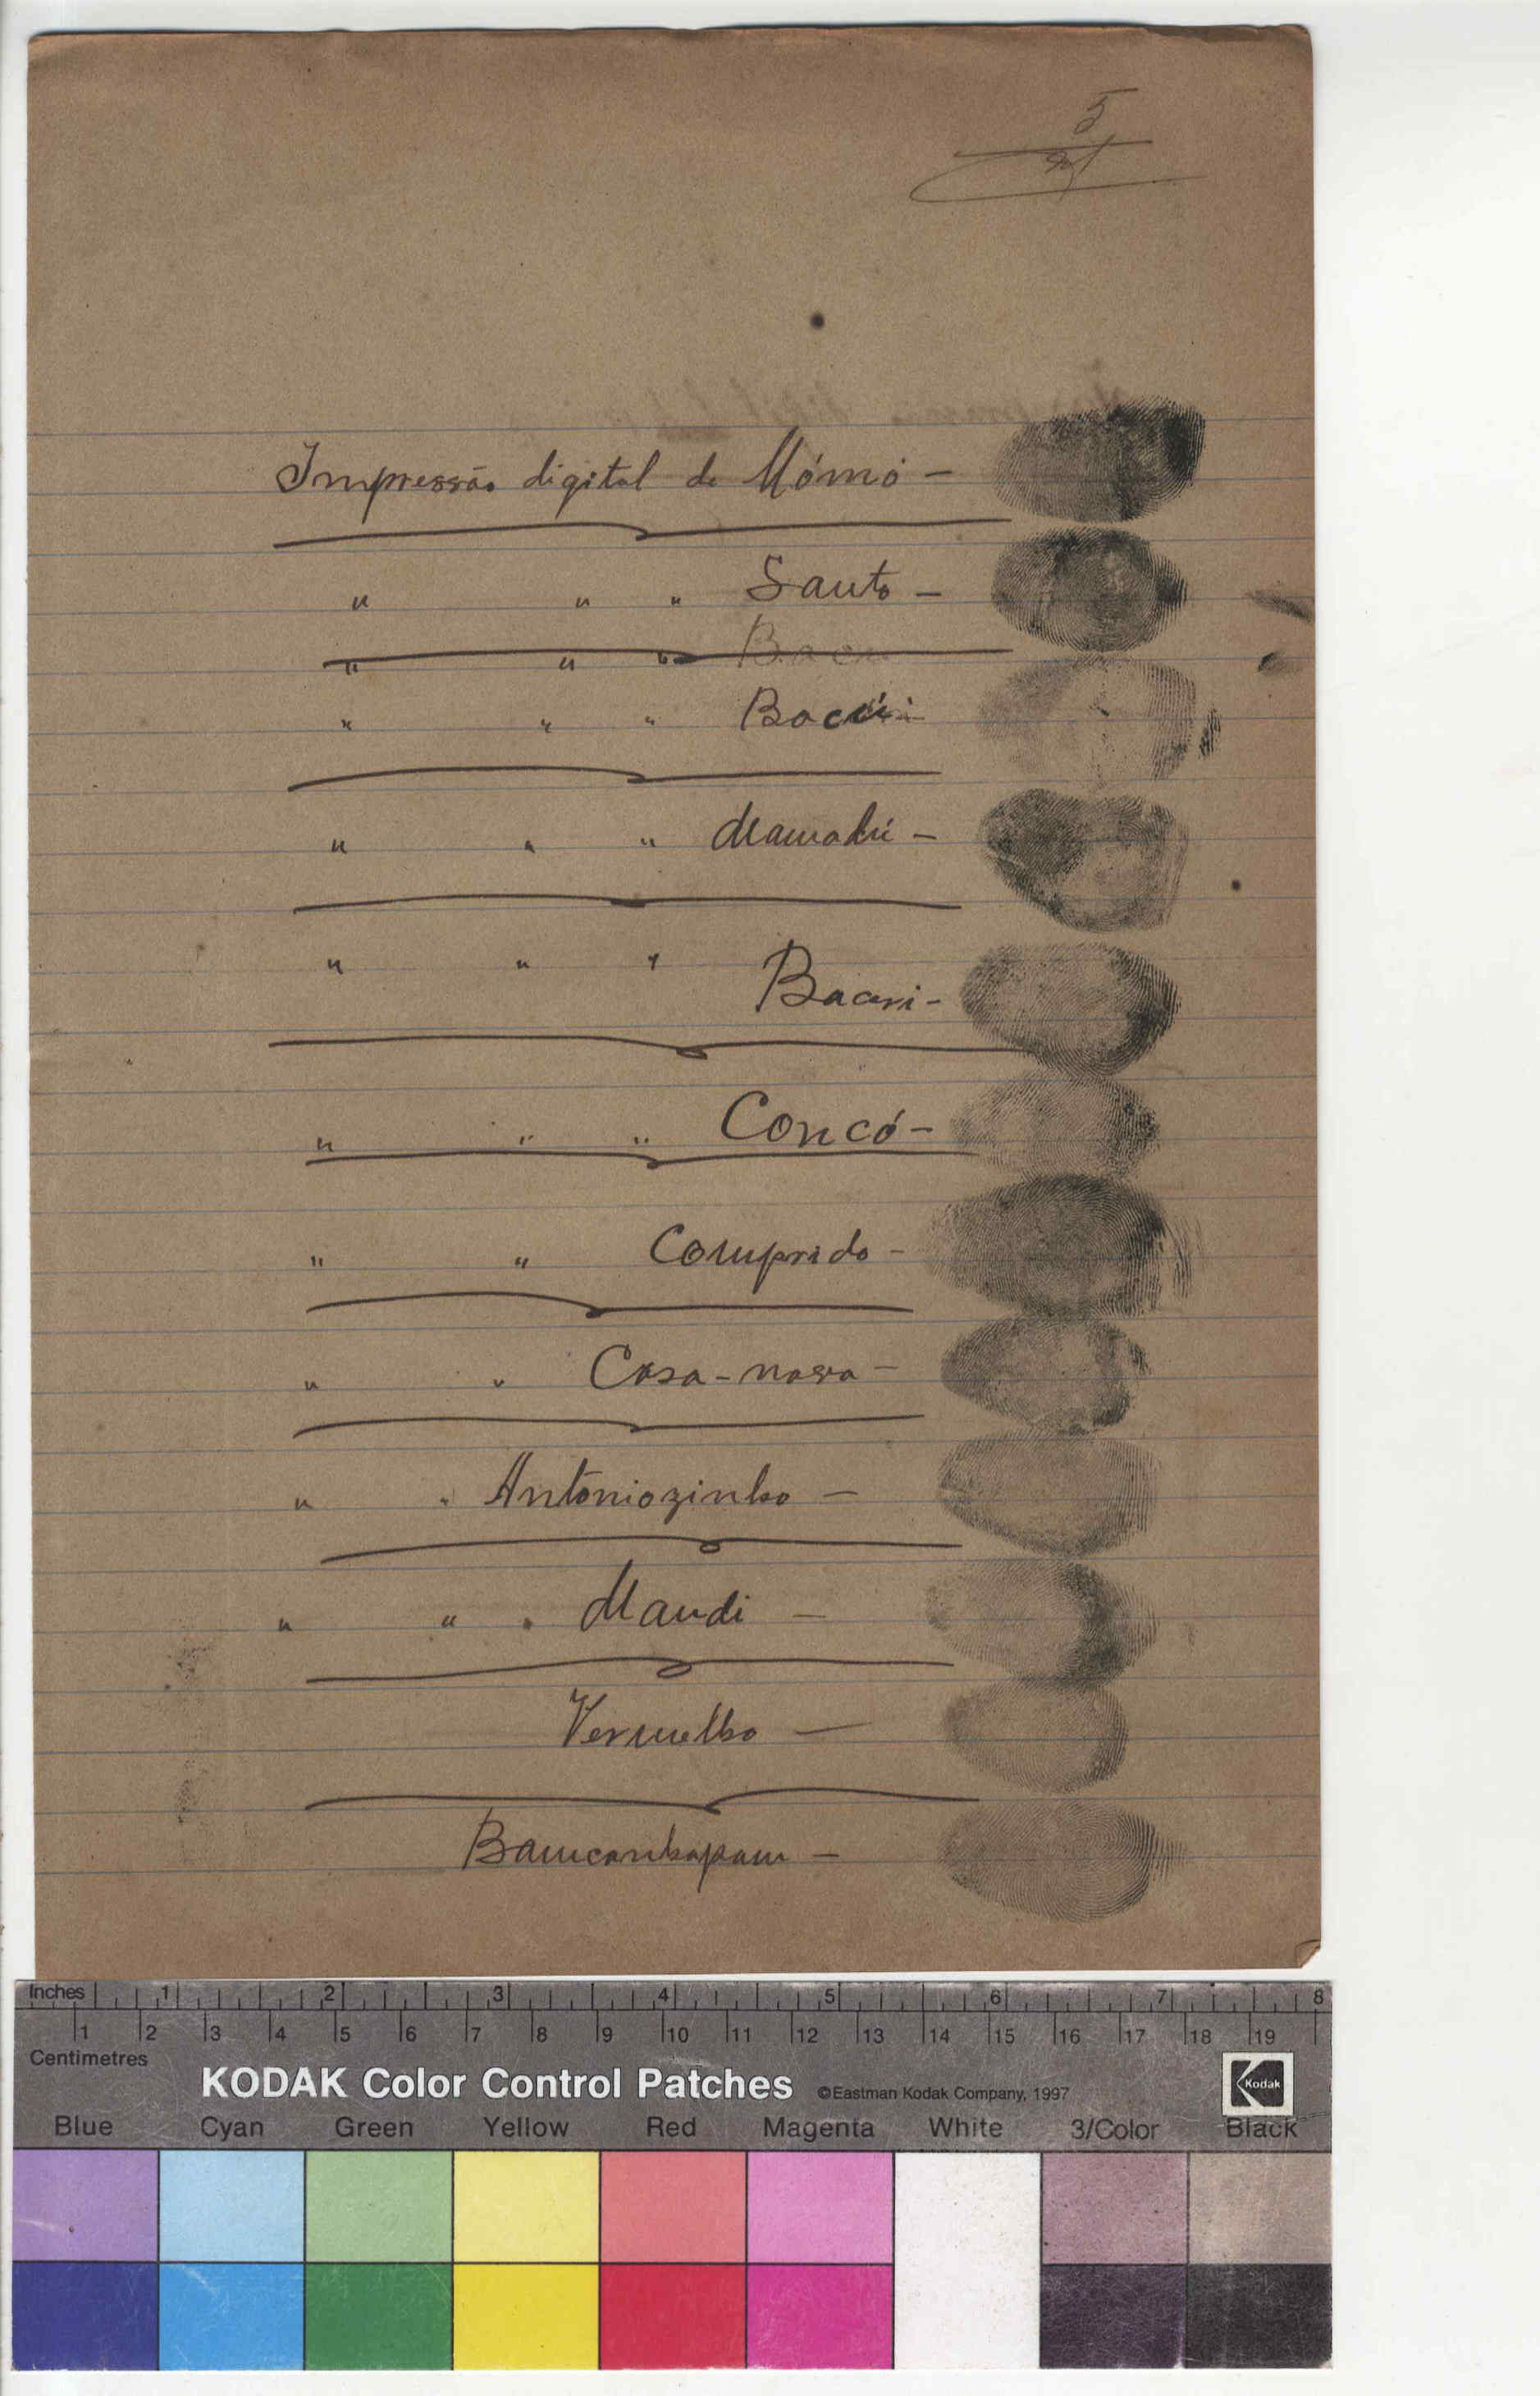 5
Impressão digital de Mómó -
" " " Santo -
" " "
" " "
" " " Mamadú -
" " " Bacari -
" " " Concó -
" " Comprido -
" " Casa-nova -
" " Antôniozinho -
" " " Mandi -
Vermelho -
Inches 1 2 3 4 5 6 7 8
1 2 3 4 5 6 7 8 9 10 11 12 13 14 15 16 17 18 19
Centimetres
KODAK Color Control Patches ©Eastman Kodak Company, 1997 Kodak
Blue Cyan Green Yellow Red Magenta White 3/Color Black